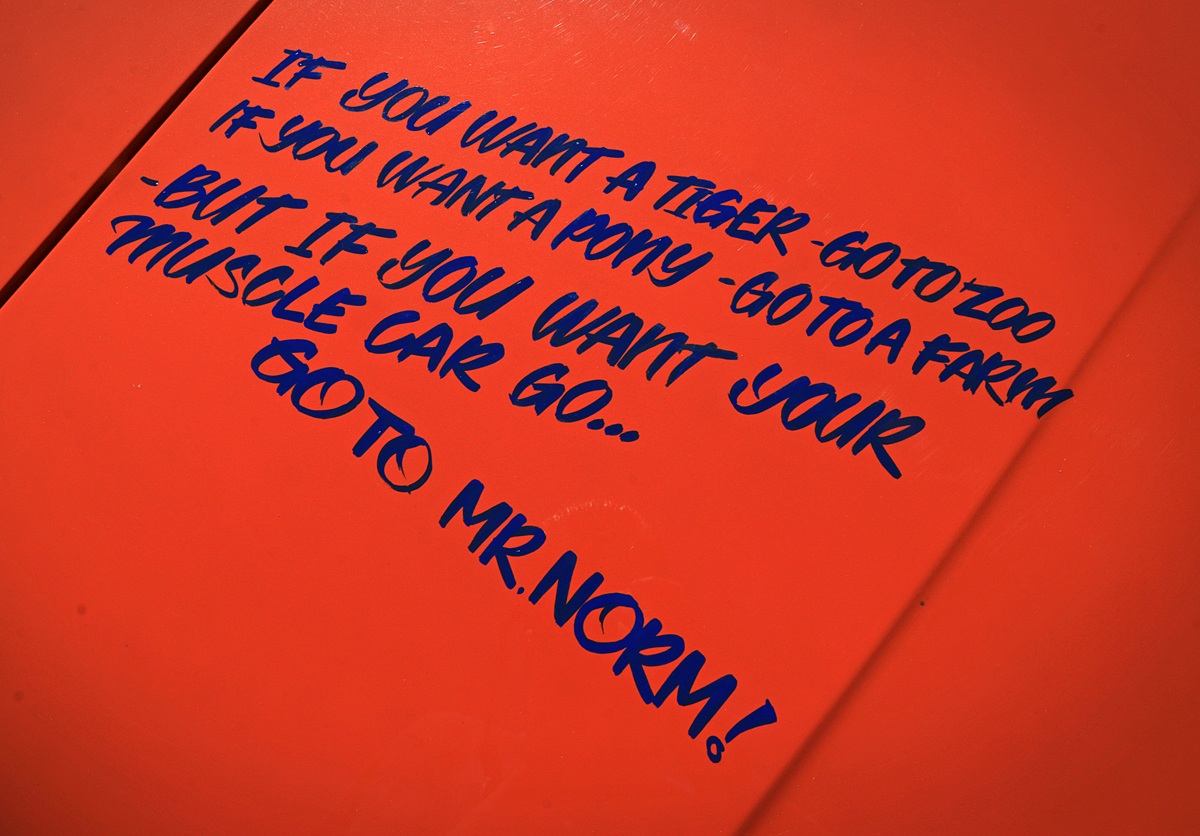 IF YOU WANT A TIGER - GO TO ZOO
IF YOU WANT A PONY - GO TO A FARM
- BUT IF YOU WANT YOUR
MUSCLE CAR GO...
GO TO MR. NORM!